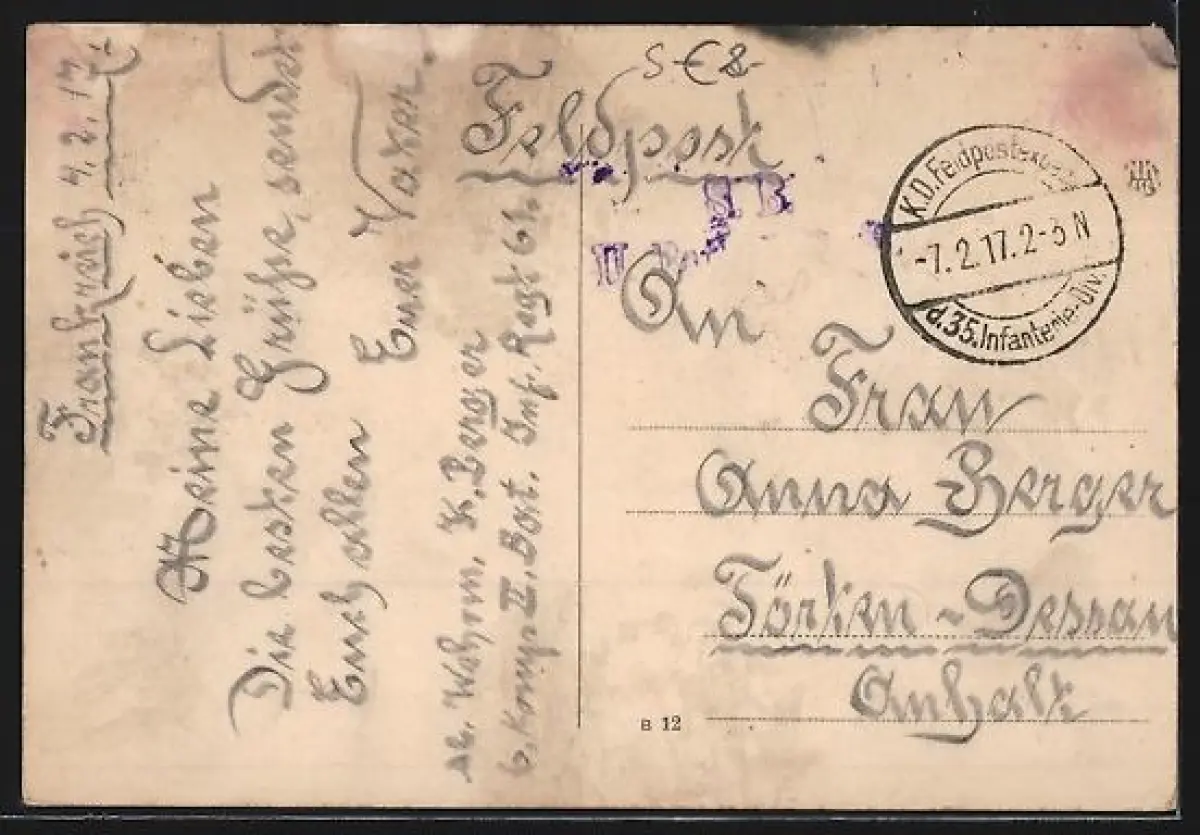 Frankreich 4.2.17.
Meine Lieben
Die besten Grüsse, sendet
Euch allen Euer Vater.
Abs. Wehrm. K. Berger
6. Komp. II. Bat. Inf. Regt 61.
S-€8-
Feldpost
S. B.
II
An
Frau
Anna Berger
Törten - Dessau
Anhalt
B 12
K.D. Feldpostexped.
-7.2.17. 2-3 N
d. 35. Infanterie-Div.